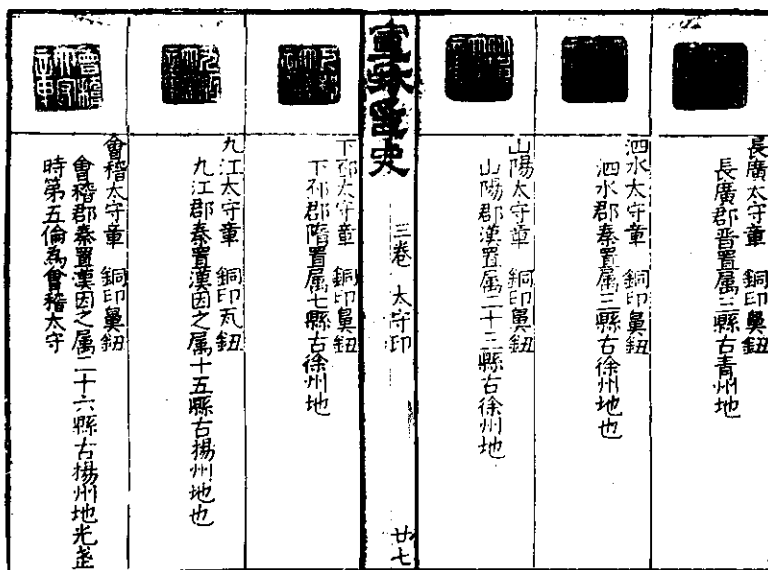 長廣太守章 銅印鼻鈕
長廣郡晋置属三縣古青州地
泗水太守章 銅印鼻鈕
泗水郡秦置属三縣古徐州地也
山陽太守章 銅印鼻鈕
山陽郡漢置属二十三縣古徐州地
宣和印史
三卷 太守印
廿七
下邳太守章 銅印鼻鈕
下邳郡隋置属七縣古徐州地
九江太守章 銅印瓦鈕
九江郡秦置漢因之属十五縣古揚州地也
會稽太守章 銅印鼻鈕
會稽郡秦置漢因之属二十六縣古揚州地光武
時第五倫為會稽太守